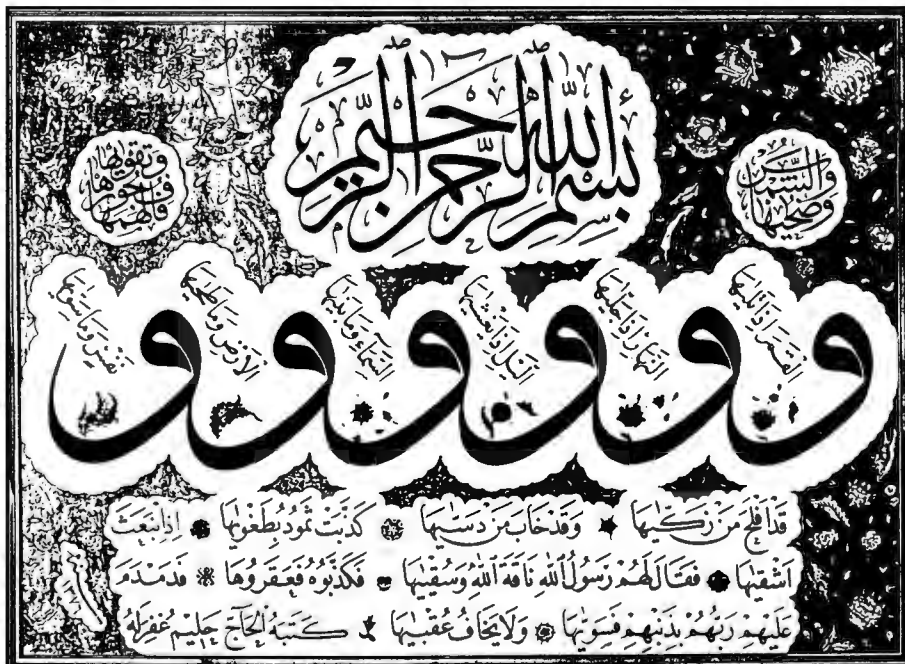 بسم الله الرحمن الرحيم
والشمس
وضحيها
و القمر اذا تليها
و النهار اذا جليها
و اليل اذا يغشيها
و السماء وما بنيها
و الارض وما طحيها
و نفس وما سويها
فالهمها
فجورها
وتقويها
قد افلح من زكيها وقد خاب من دسيها كذبت ثمود بطغويها اذ انبعث
اشقيها فقال لهم رسول الله ناقة الله وسقييها فكذبوه فعقروها فدمدم
عليهم ربهم بذنبهم فسويها ولا يخاف عقبيها كتبه الحاج حليم غفرله